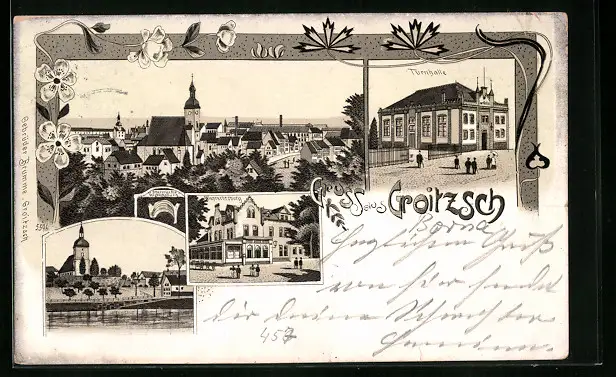 Turnhalle
Gruss aus Groitzsch
Borna
Gebrüder Brumme Groitzsch
Herzlichen Gruß
von hier sendet
dir deine Schwester
457